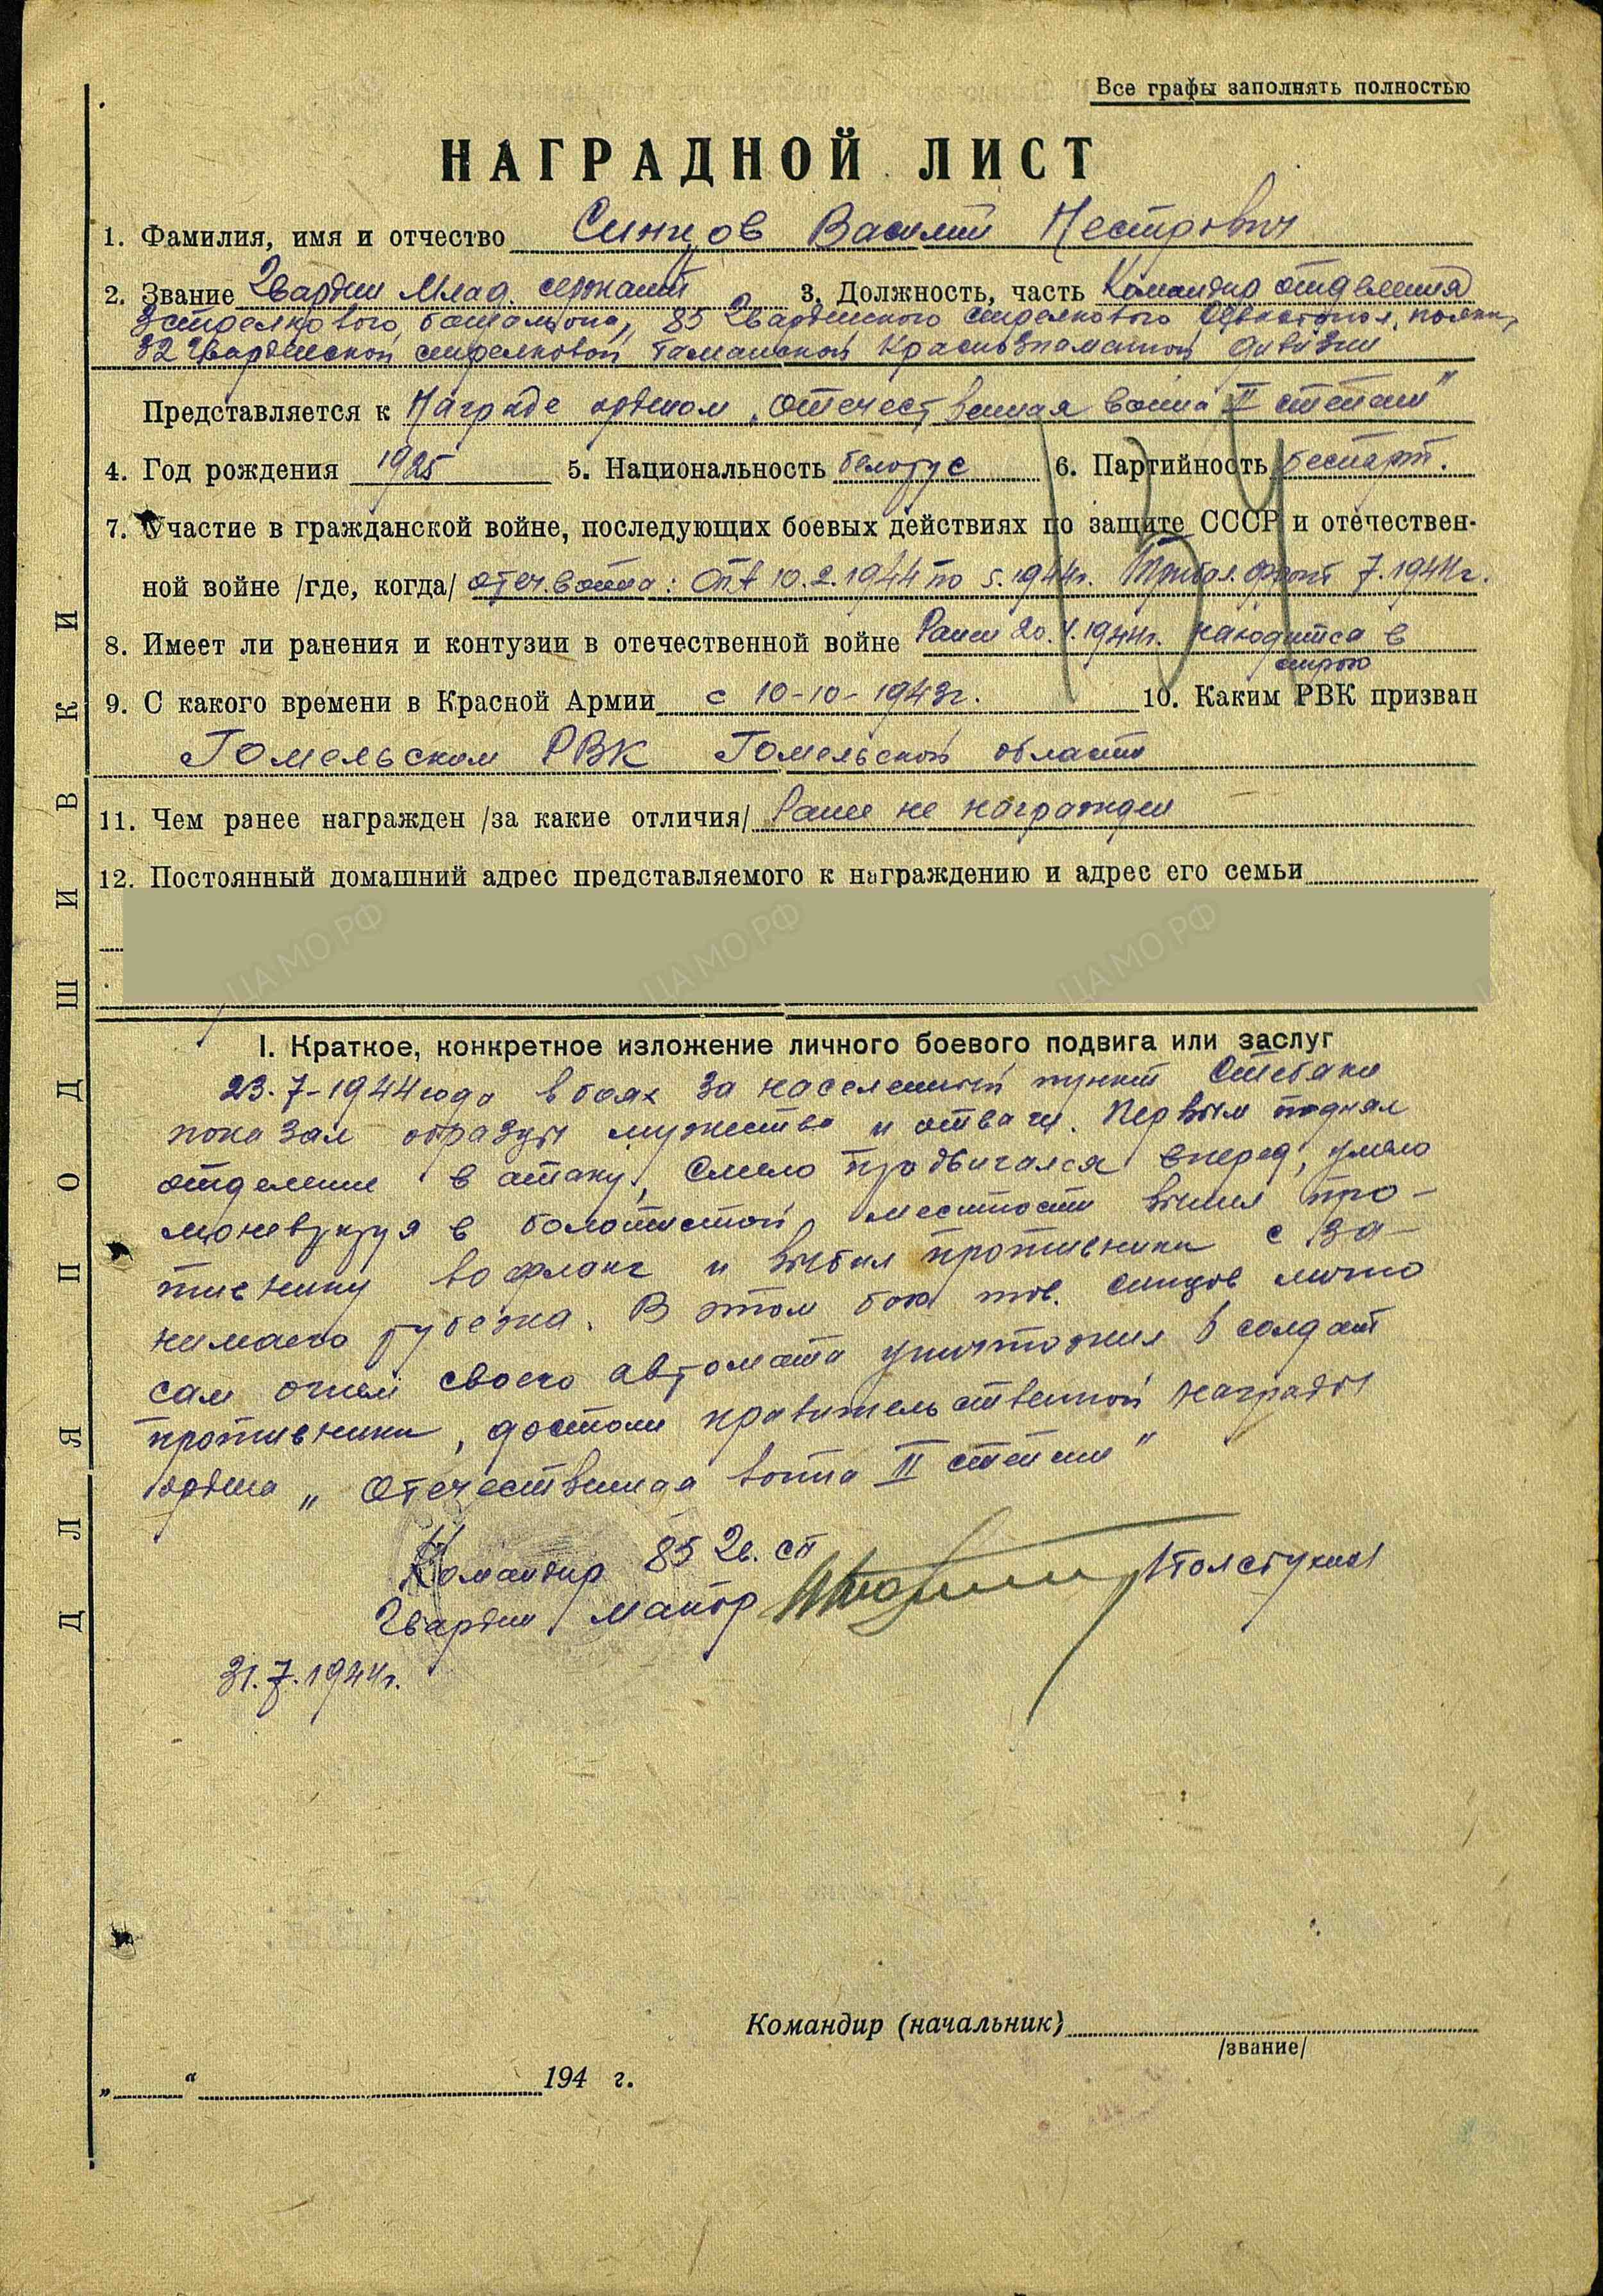 Все графы заполнять полностью
НАГРАДНОЙ ЛИСТ
1. Фамилия, имя и отчество Синцов Василий Нестрович
2. Звание Гвардии Млад. сержант 3. Должность, часть Командир отделения
3 стрелкового батальона, 85 Гвардейского стрелкового Севастопол. полка,
32 Гвардейской стрелковой Таманской Краснознаменной дивизии
Представляется к Награде орденом „Отечественная война II степени"
134
4. Год рождения 1925 5. Национальность белорус 6. Партийность беспарт.
7. Участие в гражданской войне, последующих боевых действиях по защите СССР и отечествен-
ной войне /где, когда/ отеч. война: с 10.2.1944 по 5.1944г. Прибал. фронт 7.1944г.
8. Имеет ли ранения и контузии в отечественной войне Ранен 20.4.1944г. находится в
строю
9. С какого времени в Красной Армии с 10-10-1943г. 10. Каким РВК призван
Гомельским РВК Гомельской области
11. Чем ранее награжден /за какие отличия/ Ранее не награжден
12. Постоянный домашний адрес представляемого к награждению и адрес его семьи
I. Краткое, конкретное изложение личного боевого подвига или заслуг
23.7-1944 года в боях за населенный пункт Стебаки
показал образцы мужества и отваги. Первым поднял
отделение в атаку, смело продвигался вперед, умело
моневрируя в болотистой местности вышел про-
тивнику во фланг и выбил противника с за-
нимаего рубежа. В этом бою тов. Синцов лично
сам огнем своего автомата уничтожил 6 солдат
противника, достоин правительственной награды
ордена „Отечественная война II степени"
Командир 85 гв. сп
Гвардии майор /Толстухин/
31.7.1944г.
Командир (начальник)
/звание/
„ “ 194 г.
ДЛЯ ПОДШИВКИ
ЦАМО РФ ЦАМО РФ ЦАМО РФ